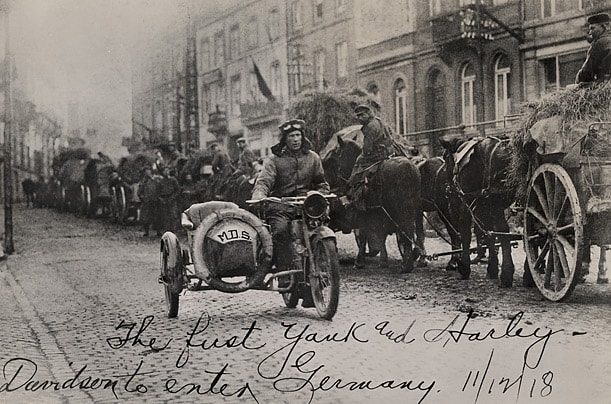 M.D.S
The first Yank and Harley-
Davidson to enter Germany. 11/12/18